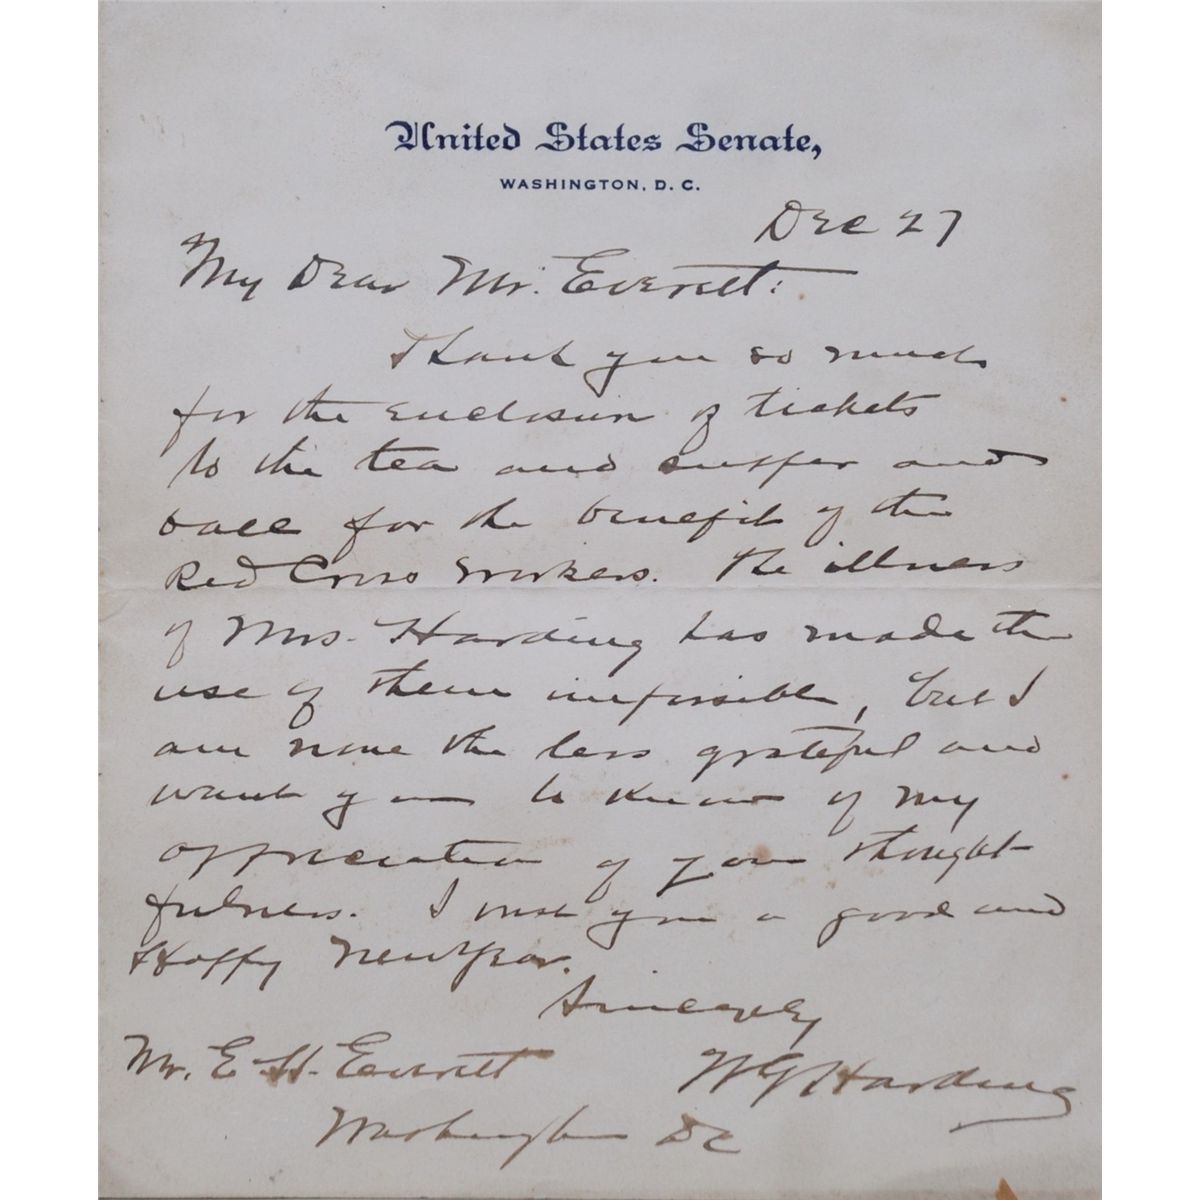 United States Senate,
WASHINGTON, D. C.
Dec 27
My Dear Mr. Everett:
Thank you so much
for the enclosure of tickets
to the tea and supper and
ball for the benefit of the
Red Cross workers. The illness
of Mrs. Harding has made the
use of them impossible, but I
am none the less grateful and
want you to know of my
appreciation of your thought-
fulness. I wish you a good and
Happy New Year.
Sincerely
WG Harding
Mr. E. H. Everett
Washington DC